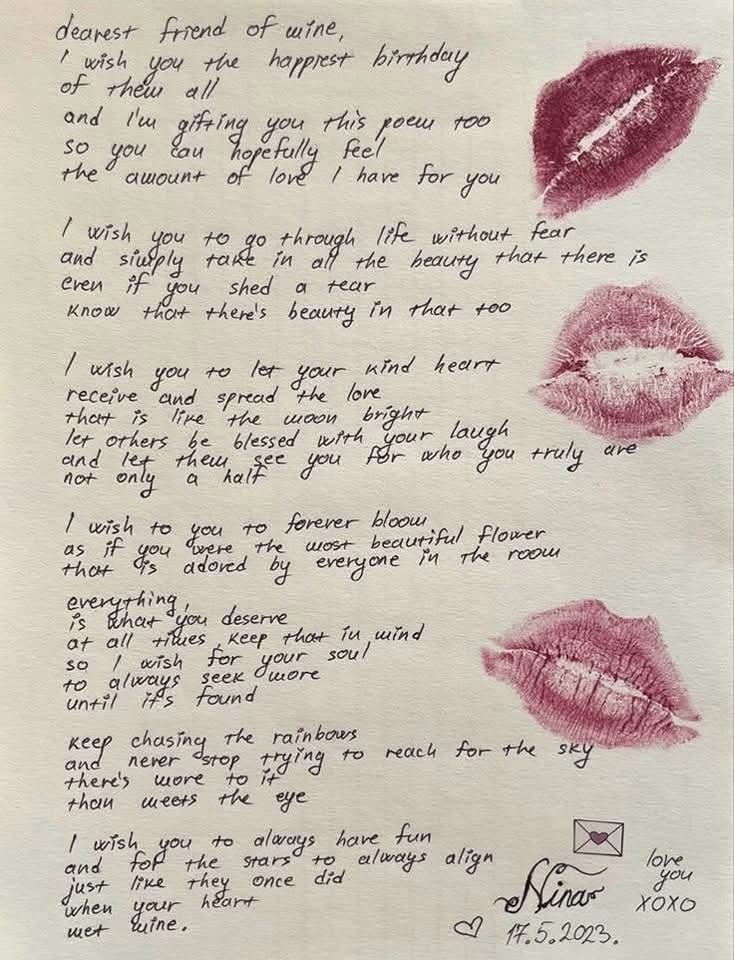 dearest friend of mine,
I wish you the happiest birthday
of them all
and I'm gifting you this poem too
so you can hopefully feel
the amount of love I have for you
I wish you to go through life without fear
and simply take in all the beauty that there is
even if you shed a tear
know that there's beauty in that too
I wish you to let your kind heart
receive and spread the love
that is like the moon bright
let others be blessed with your laugh
and let them see you for who you truly are
not only a half
I wish to you to forever bloom
as if you were the most beautiful flower
that is adored by everyone in the room
everything,
is what you deserve
at all times keep that in mind
so I wish for your soul
to always seek more
until it's found
keep chasing the rainbows
and never stop trying to reach for the sky
there's more to it
than meets the eye
I wish you to always have fun
and for the stars to always align
just like they once did
when your heart
met mine.
Nina
17.5.2023.
love
you
XOXO